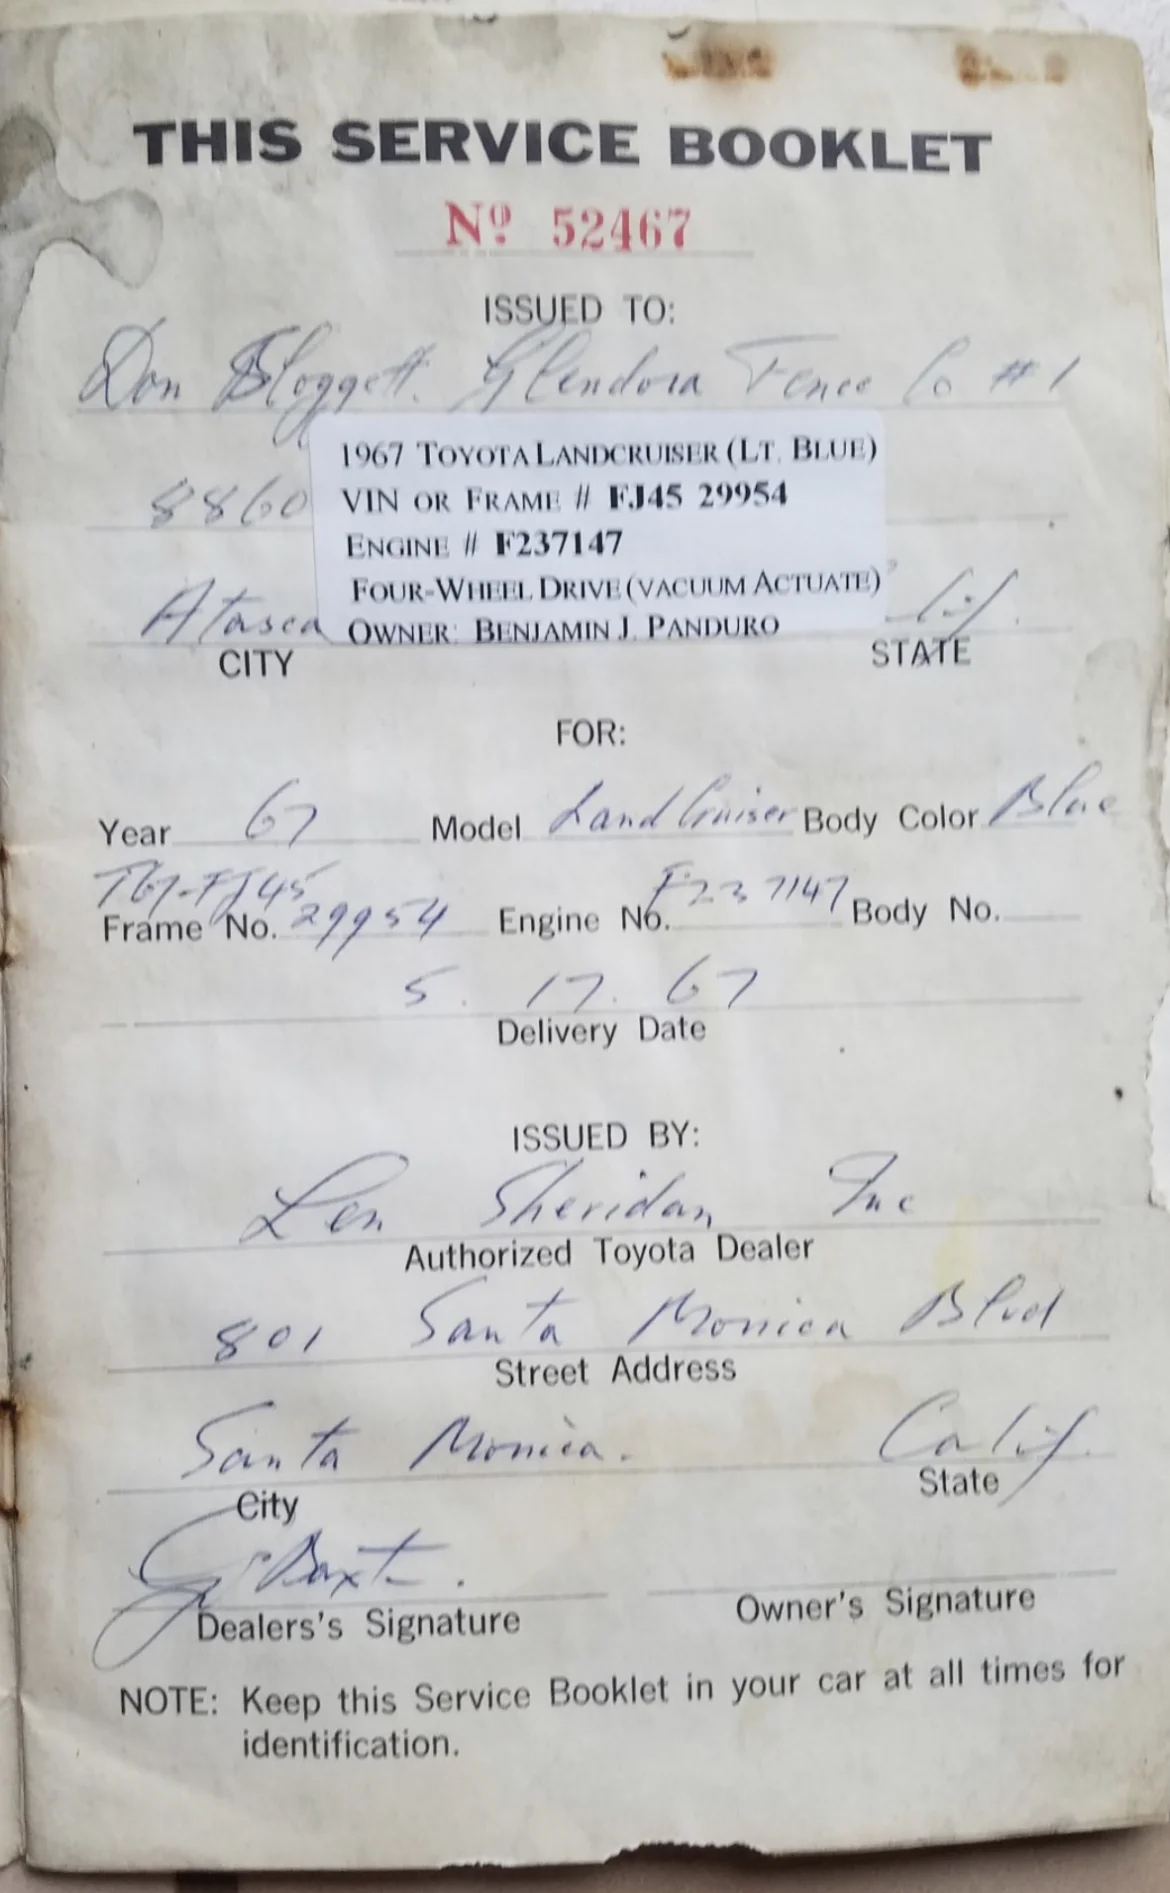 THIS SERVICE BOOKLET
Nº 52467
ISSUED TO:
Don Bloggett. Glendora Fence Co #1
1967 TOYOTA LANDCRUISER (LT. BLUE)
8860
VIN OR FRAME # FJ45 29954
ENGINE # F237147
FOUR-WHEEL DRIVE (VACUUM ACTUATE)
Atasca
OWNER: BENJAMIN J. PANDURO
CITY STATE
FOR:
Year 67 Model Land Cruiser Body Color Blue
T67-FJ45
Frame No. 29954 Engine No. F237147 Body No.
5. 17. 67
Delivery Date
ISSUED BY:
Len Sheridan Inc
Authorized Toyota Dealer
801 Santa Monica Blvd
Street Address
Santa Monica. Calif.
City State
Baxter.
Dealers's Signature Owner's Signature
NOTE: Keep this Service Booklet in your car at all times for
identification.